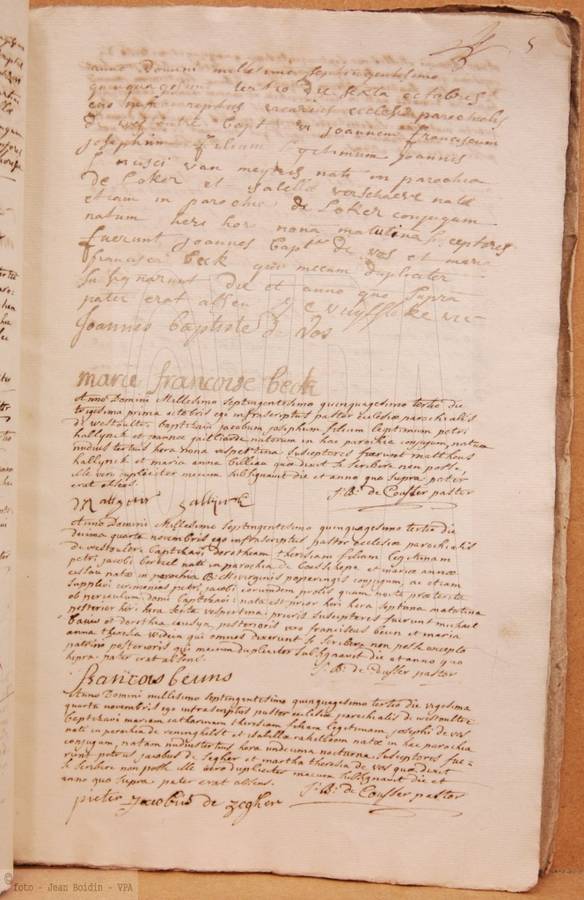 5
anno Domini millesimo septingentesimo
quinquagesimo tertio die sexta octobris
ego infrascriptus vicarius ecclesiæ parochialis
de westoutre bapt vi joannem franciscum
josephum filium legitimum joannis
van nati in parochia
de Loker et verschaeve nata
etiam in parochia de Loker conjugum
natum heri hora nona matutina susceptores
fuerunt joannes bapta de vos et marie
francisca beck qui mecum dupliciter
subsignarunt die et anno quo supra
pater erat absen
joannis baptiste de vos
marie francoise beck
Anno Domini Millesimo septingentesimo quinquagesimo tertio die
trigesima prima octobris ego infrascriptus pastor ecclesiæ parochialis
de westoutre baptizavi jacobum josephum filium legitimum petri
hallynck et joannæ gailliarde natorum in hac parochia conjugum, natum
nudius tertius hora nona vespertina susceptores fuerunt mattheus
hallynck et maria anna quæ dixit se scribere non posse,
ille vero dupliciter mecum subsignavit die et anno quo supra pater
erat absens. J. B. de Cousser pastor
Anno Domini Millesimo septingentesimo quinquagesimo tertio die
decima quarta novembris ego infrascriptus pastor ecclesiæ parochialis
de westoutre baptizavi dorotheam theresiam filiam legitimam
petri jacobi nati in parochia de et mariæ annæ
natæ in parochia B: poperingis conjugum, ac etiam
supplevi ceremonias petri jacobi eorumdem prolis quam nocte præterita
ob periculum domi baptizavi: nata est prior heri hora septima matutina
posterior heri hora sexta vespertina: prioris susceptores fuerunt michael
et dorothea posterioris vero franciscus beun et maria
anna theresia qui omnes dixerunt se scribere non posse excepto
patrino posterioris qui mecum dupliciter subsignavit die et anno quo
supra pater erat absens. J. B. de Cousser pastor
francois beuns
Anno Domini millesimo septingentesimo quinquagesimo tertio die vigesima
quarta novembris ego infrascriptus pastor ecclesiæ parochialis de westoutre
baptizavi mariam catharinam theresiam filiam legitimam josephi de vos
nati in parochia de reninghelst et isabella natæ in hac parochia
conjugum, natam nudiustertius hora undecima nocturna susceptores fue-
runt petrus jacobus de Zegher et martha theresia de vos quæ dixit
se scribere non posse ille vero dupliciter mecum subsignavit die et
anno quo supra pater erat absens. J. B. de Cousser pastor
pieter jacobus de zegher
©foto - Jean Boidin - VPA